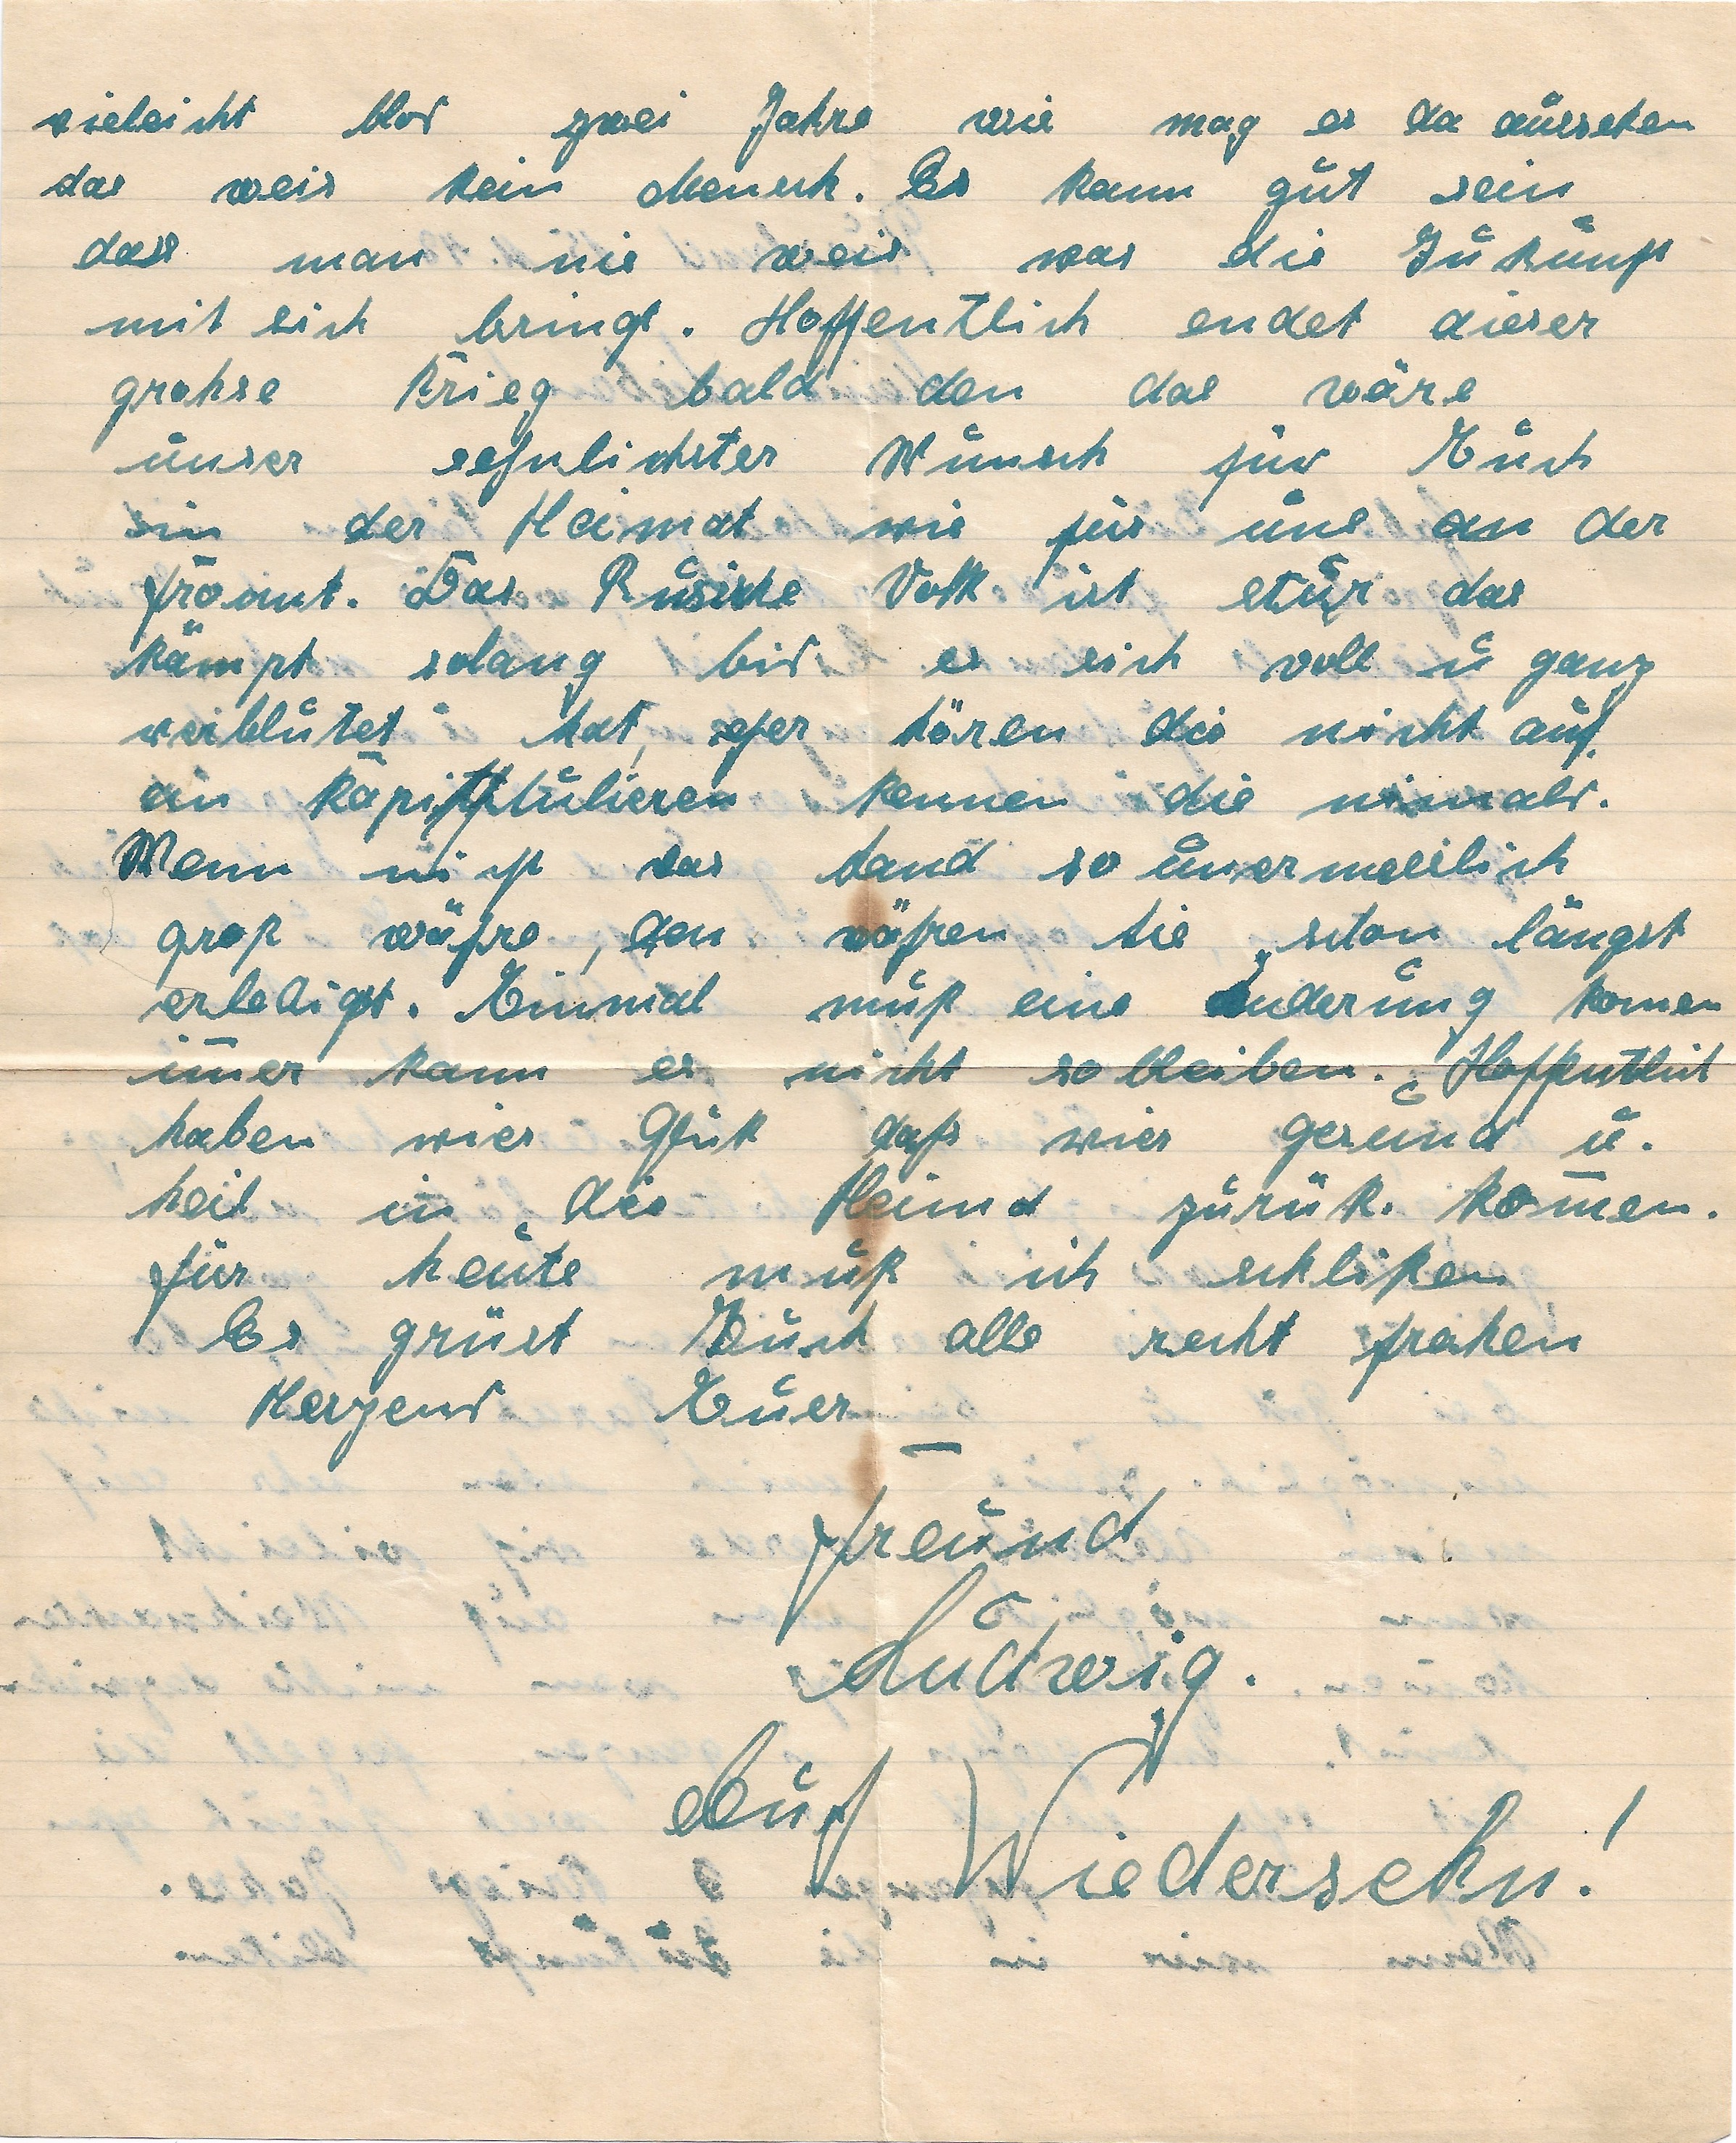 vieleicht blos zwei Jahre wie mag es da aussehen
das weis kein Mensch. Es kann gut sein
dass man nie weis was die Zukunft
mit sich bringt. Hoffentlich endet dieser
grohse Krieg bald den das wäre
unser sehnlichster Wunsch für Euch
in der Heimat wie für uns an der
froant. Das Rusische Volk ist stur das
kämpt solang bis es sich voll u ganz
verblutet hat, eher hören die nicht auf.
an kapittulieren kennen die nimals.
Wenn nicht das Land so unermeslich
groß währe, den währen sie schon längst
erledigt. Einmal muß eine änderung komen
im̄er kann es nicht so bleiben. Hoffentlich
haben wier Glük daß wier gesund u.
heil in die Heimat zurük. kom̄en.
für heute muß ich schlißen
Es grüst Euch alle recht frohen
Herzens Euer
freund
Ludwig.
Auf Wiedersehn!